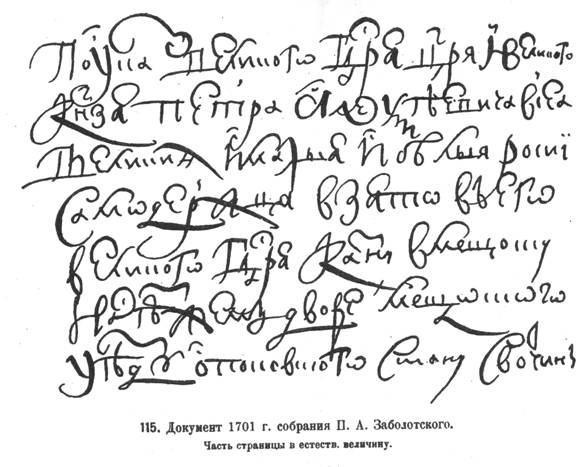 По ука великого гдря цря и великого
кнзя петра алеѯѣевича всеа
великия и малыя и белыя росиї
самодержца взято в ѣго
великого гдря казну в мещоску
дворе мещоского
уѣзду стану с вотчины
115. Документ 1701 г. собрания П. А. Заболотского.
Часть страницы в естеств. величину.